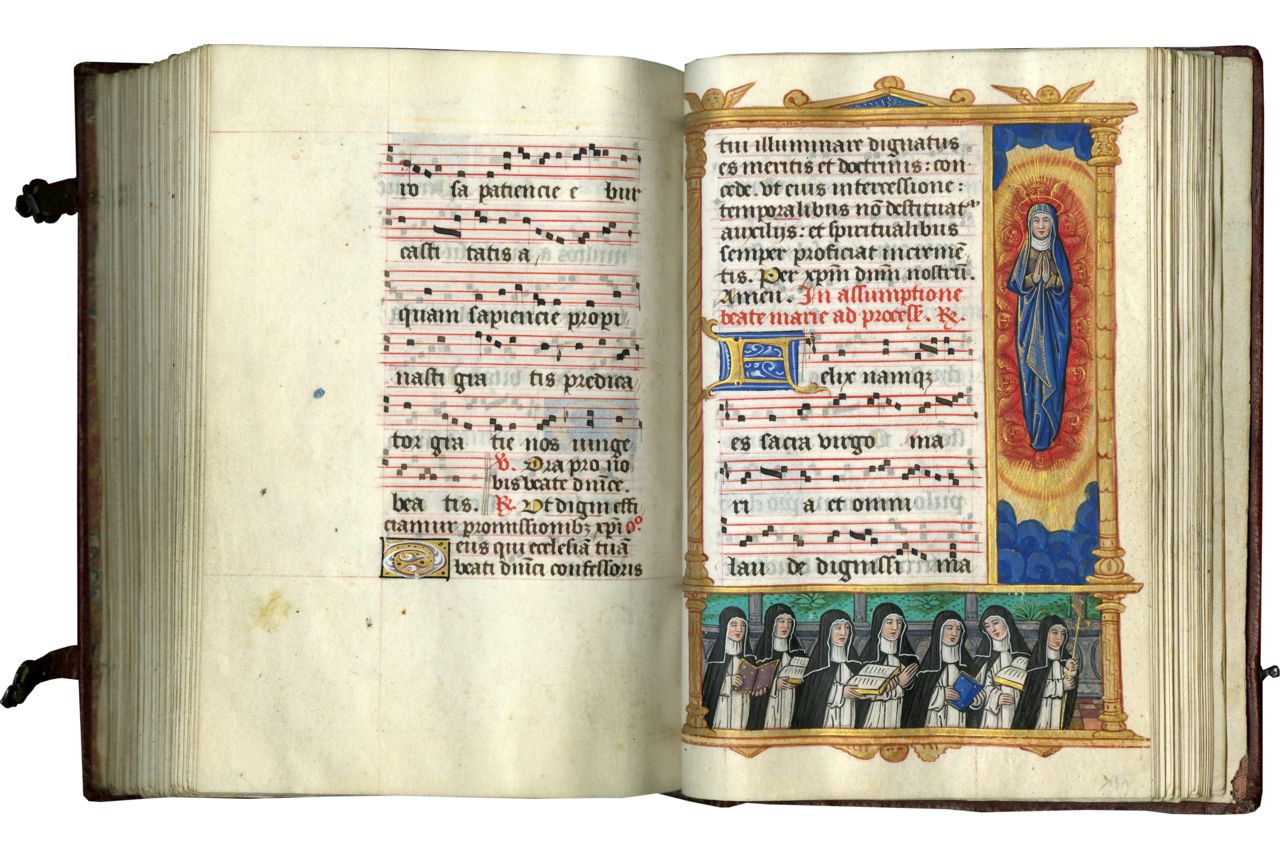 ro sa patiencie e bur
casti tatis a
quam sapiencie propi
nasti gra tis predica
tor gra tie nos iunge
℣. Ora pro no
bis beate dn̄ice.
bea tis. ℟. Vt digni effi
ciamur promissionibꝫ xp̄i oº
Deus qui ecclesiā tuā
beati dn̄ici confessoris
tui illuminare dignatus
es meritis et doctrinis: con
cede. vt eius intercessione:
temporalibus nō destituat᷑
auxilijs: et spiritualibus
semper proficiat increme͂
tis. Per xp̄m dn̄m nostrū.
Amen. In assumptione
beate marie ad process̄. ℟.
Felix namqꝫ
es sacra virgo ma
ri a et omni
lau de dignissi ma